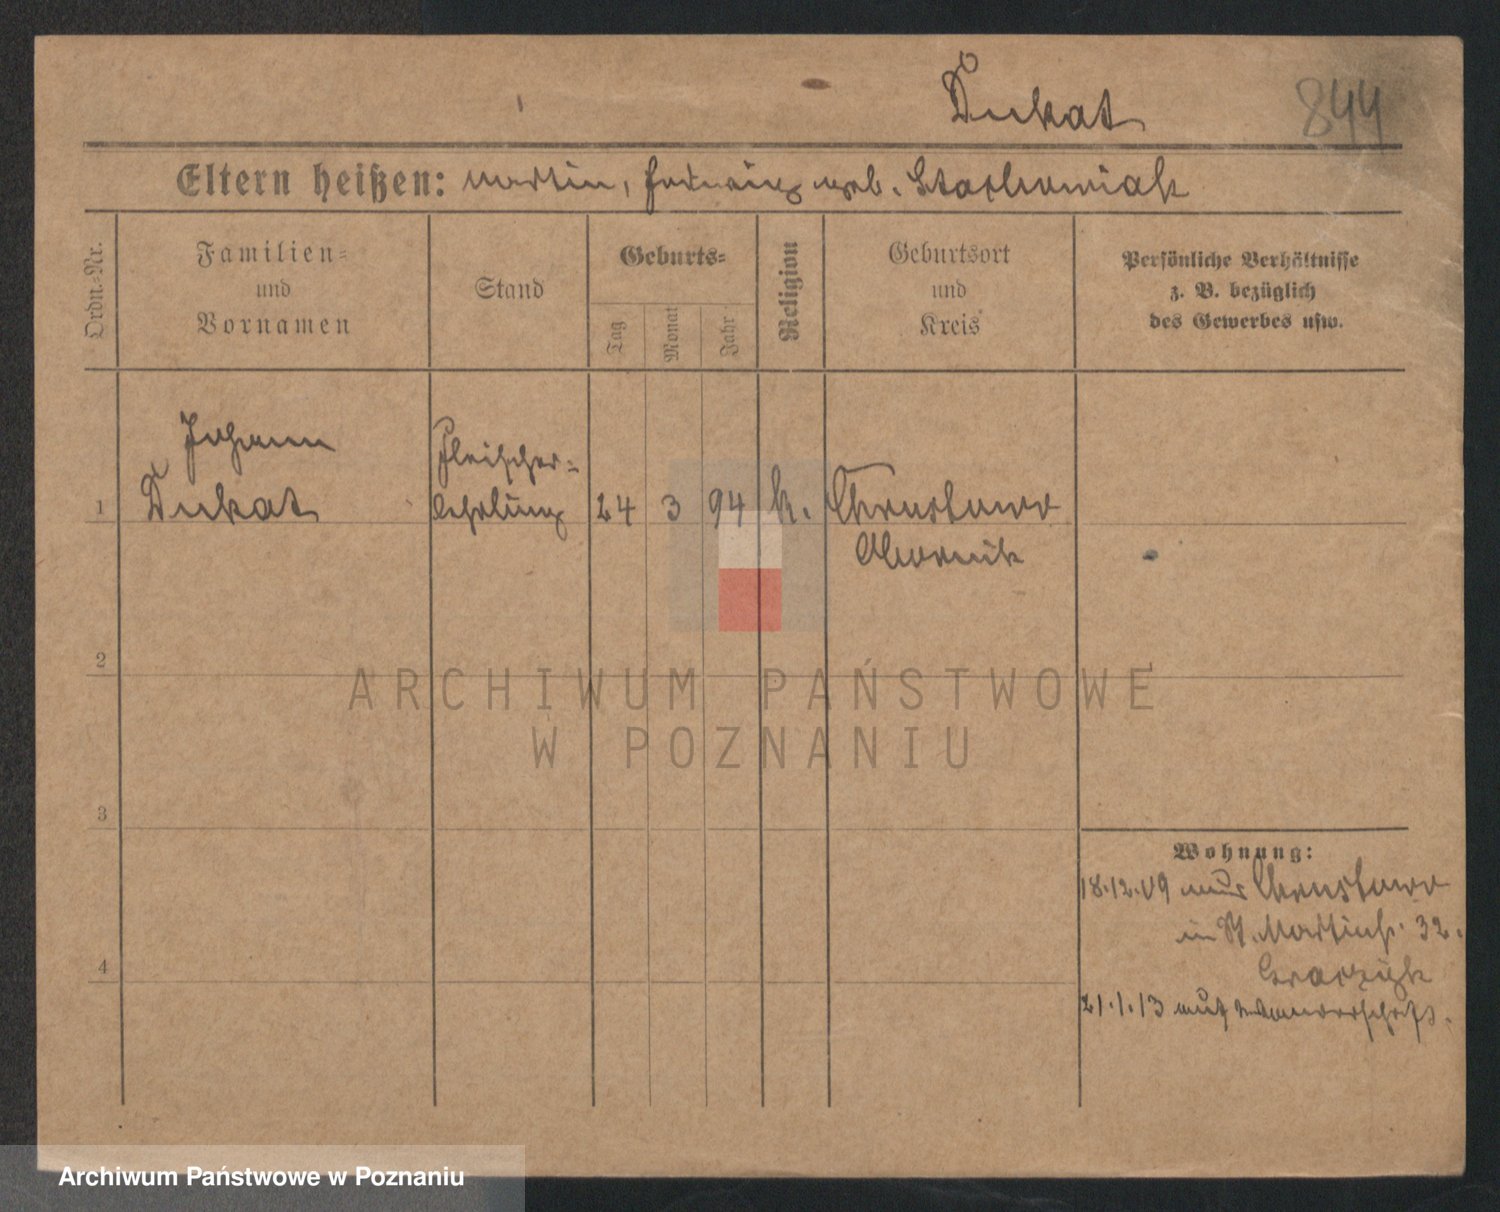 Dukat
844
Eltern heißen: Martin, geb. Stachowiak
Ordn.-Nr.
Familien-
und
Vornamen
Stand
Geburts-
Tag
Monat
Jahr
Religion
Geburtsort
und
Kreis
Persönliche Verhältnisse
z. B. bezüglich
des Gewerbes usw.
Johann
Dukat
Fleischer-
lehrling
1
24
3
94
k.
Chrustowo
Obornik
2
3
4
Wohnung:
18.12.09 aus Chrustowo
in St. Martinstr. 32.
21.1.13 auf Wanderschaft.
ARCHIWUM PAŃSTWOWE
W POZNANIU
Archiwum Państwowe w Poznaniu